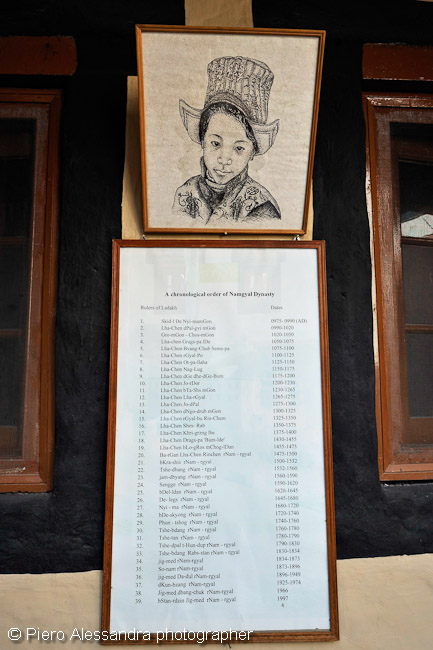 A chronological order of Namgyal Dynasty
Rulers of Ladakh Dates
1. Skid-I De Nyi-mamGon 0975-0990 (AD)
2. Lha-Chen dPal-gyi mGon 0990-1020
3. Gro-mGon - Chos-mGon 1020-1050
4. Lha-chen Grags-pa IDe 1050-1075
5. Lha-Chen Byang-Chub Sems-pa 1075-1100
6. Lha-Chen rGyal-Po 1100-1125
7. Lha-Chen Ut-pa-llaha 1125-1150
8. Lha-Chen Nag-Lug 1150-1175
9. Lha-Chen dGe dhe-dGe-Bum 1175-1200
10. Lha-Chen Jo-rDor 1200-1230
11. Lha-Chen bTa-Shi mGon 1230-1265
12. Lha-Chen Lha-rGyal 1265-1275
13. Lha-Chen Jo-dPal 1275-1300
14. Lha-Chen dNgo-drub mGon 1300-1325
15. Lha-Chen rGyal-bu Rin-Chan 1325-1350
16. Lha-Chen Shes- Rab 1350-1375
17. Lha-Chen Khri-gtang lha 1375-1400
18. Lha-Chen Drags-pa 'Bum-lde' 1430-1455
19. Lha-Chen bLo-gRos mChog-lDan 1455-1475
20. Ba-rGan Lha-Chen Rinchen rNam - rgyal 1475-1500
21. bKra-shis rNam - rgyal 1500-1532
22. Tshe-dbang rNam - rgyal 1532-1560
23. jam-dbyang rNam - rgyal 1560-1590
24. Sengge rNam - rgyal 1590-1620
25. bDel-ldan rNam - rgyal 1620-1645
26. De- legs rNam - rgyal 1645-1680
27. Nyi - ma rNam - rgyal 1680-1720
28. bDe-skyong rNam - rgyal 1720-1740
29. Phun - tshog rNam - rgyal 1740-1760
30. Tshe-bdang rNam - rgyal 1760-1780
31. Tshe-tan rNam - rgyal 1780-1790
32. Tshe-dpal't-Hun-dup rNam - rgyal 1790-1830
33. Tshe-bdang Rabs-stan rNam-rgyal 1830-1834
34. Jig-med rNam-rgyal 1834-1873
35. So-nam rNam - rgyal 1873-1896
36. Jig-med Da-dul rNam - rgyal 1896-1949
37. dKun-bzang rNam - rgyal 1925-1974
38. Jig-med dbang-chuk rNam - rgyal 1966
39. bStan-rdzin Jig-med rNam - rgyal 1997
© Piero Alessandra photographer